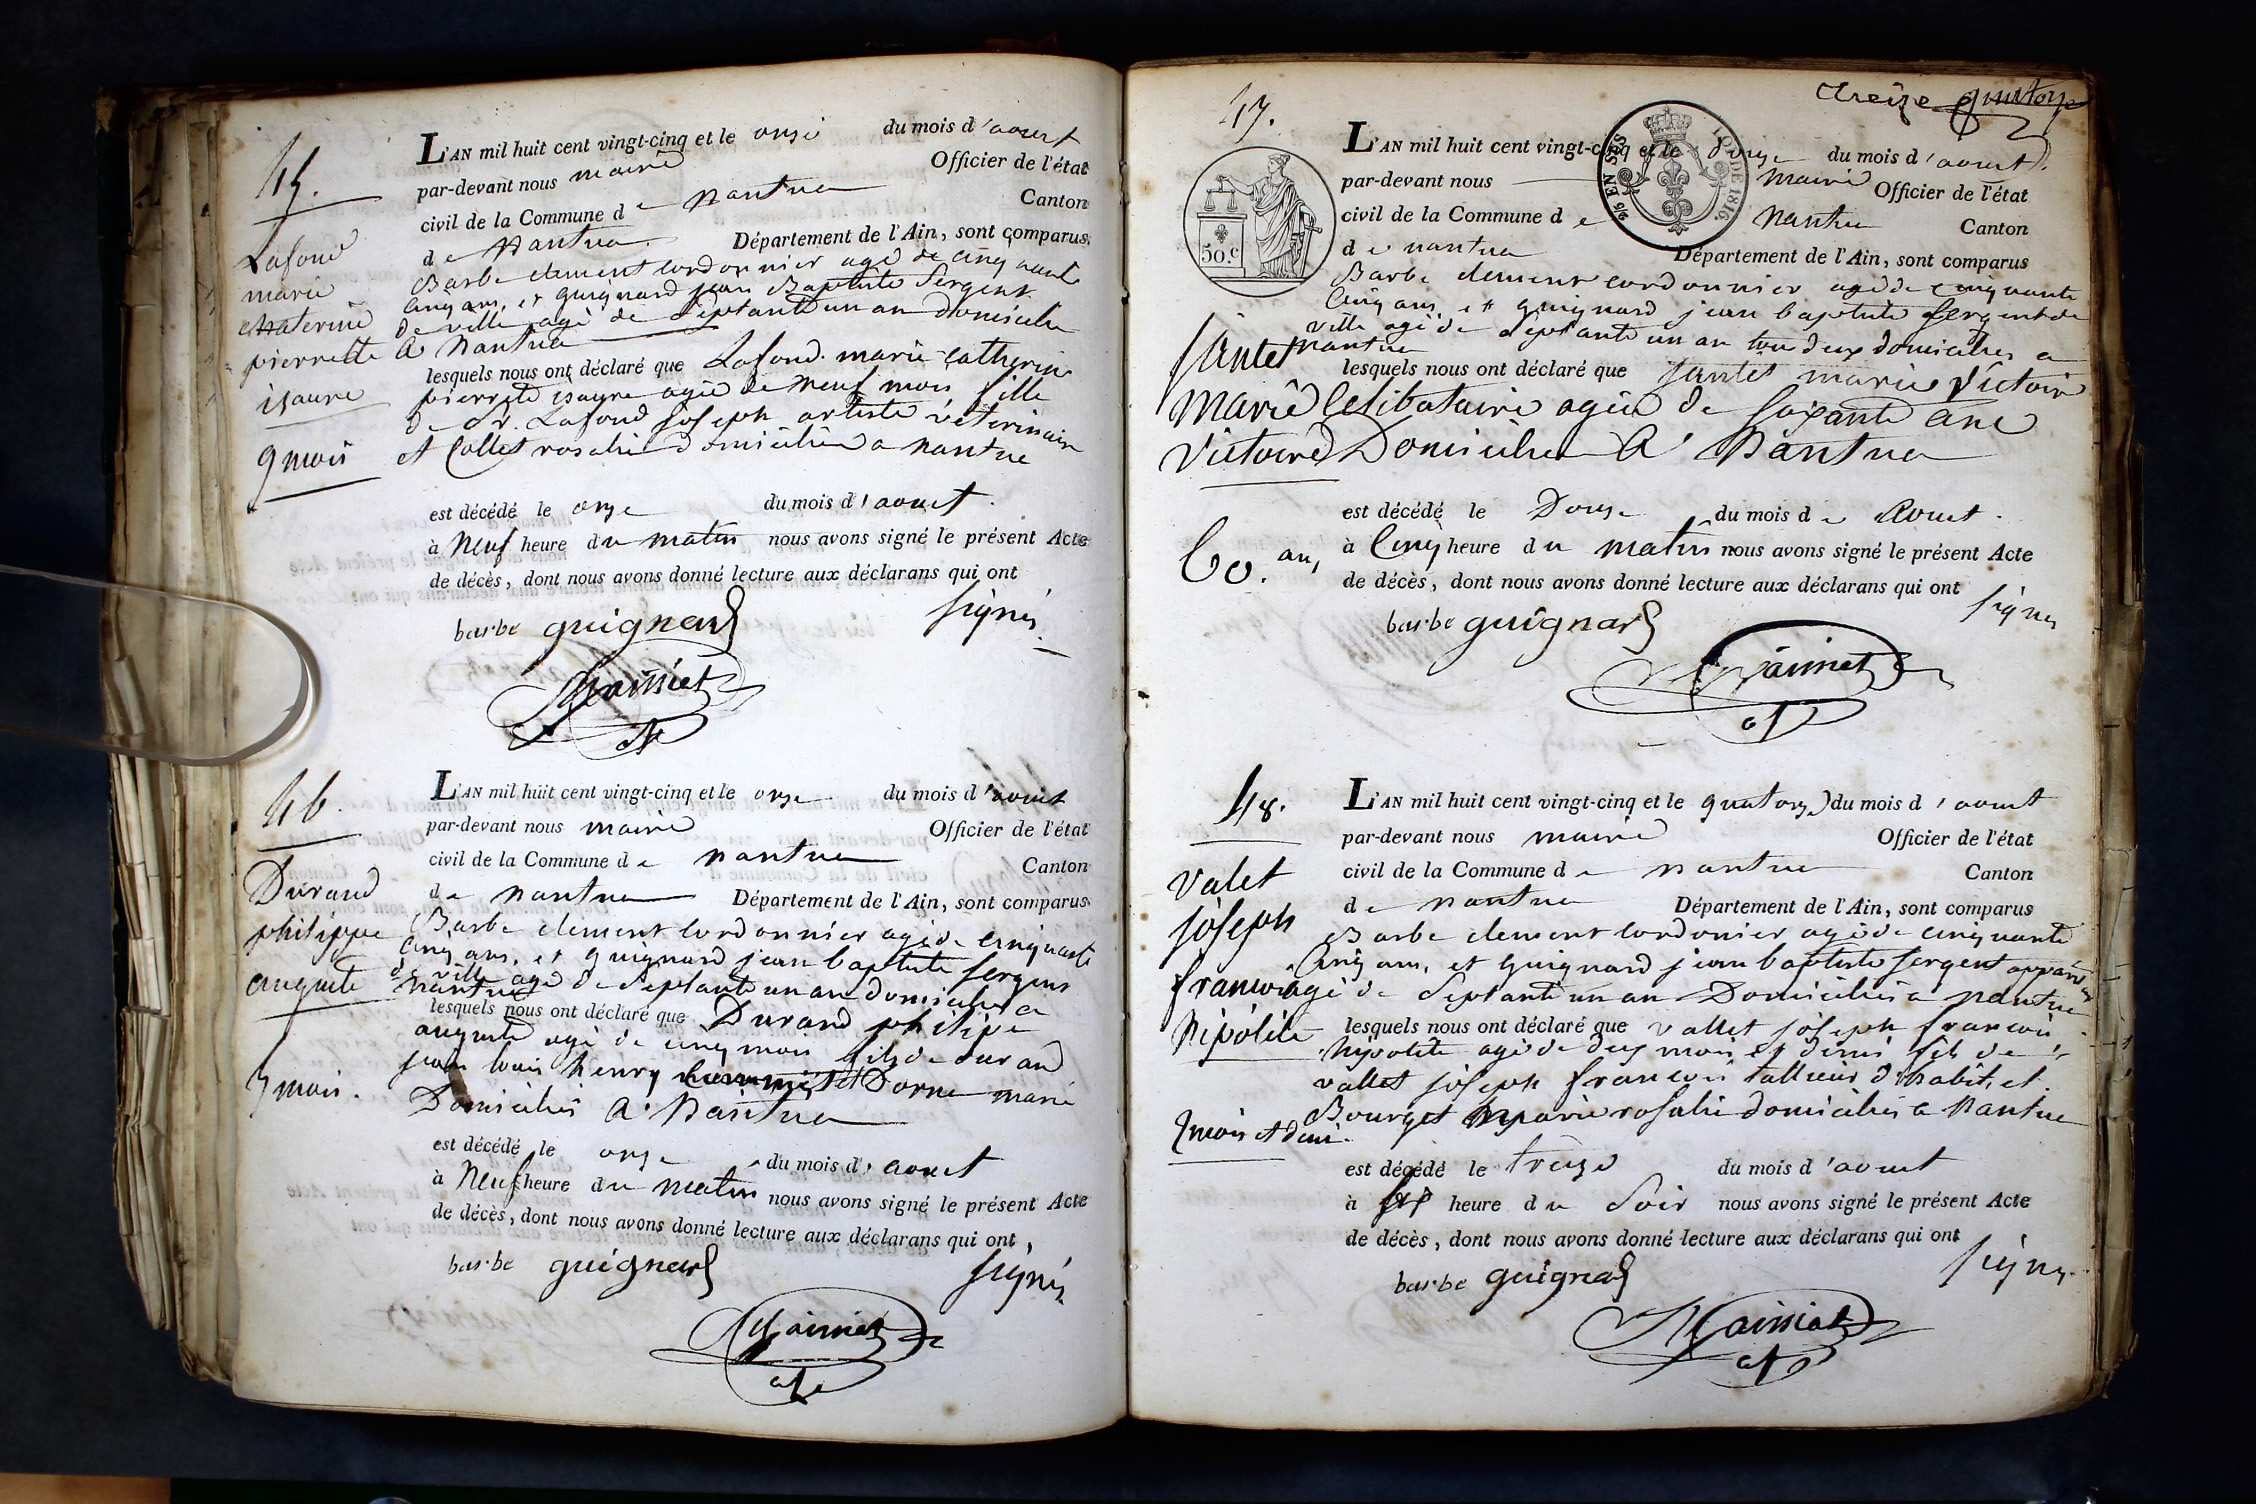 45.
Lafond
marie
chaterine
pierrette
isaure
9 mois
L'AN mil huit cent vingt-cinq et le onze du mois d'aoust
par-devant nous maire Officier de l'état
civil de la Commune de nantua Canton
de Nantua. Département de l'Ain, sont comparus
Barbe clement cordonnier agé de cinquante
cinq ans, et guignard jean Baptiste Sergent
de ville agé de Septante un an domicilié
a Nantua
lesquels nous ont déclaré que Lafond marie catherine
pierrete isaure agée de neuf mois fille
de Sr. Lafond joseph artiste véterinaire
et Collet rosalie domiciliés a nantua
est décédé le onze du mois d'aoust.
à Neuf heure du matin nous avons signé le présent Acte
de décès, dont nous avons donné lecture aux déclarans qui ont
signés
barbe guignard
46.
Durand
philippe
auguste
5 mois.
L'AN mil huit cent vingt-cinq et le onze du mois d'aoust
par-devant nous maire Officier de l'état
civil de la Commune de nantua Canton
de nantua Département de l'Ain, sont comparus
Barbe clement cordonnier agé de cinquante
cinq ans, et guignard jean baptiste sergent
de ville agé de Septante un an domiciliés a
nantua
lesquels nous ont déclaré que Durand philipe
auguste agé de cinq mois fils de durand
jean louis henry et Dorne marie
Domiciliés A Nantua
est décédé le onze du mois d'aoust
à Neuf heure du matin nous avons signé le présent Acte
de décès, dont nous avons donné lecture aux déclarans qui ont
signés
barbe guignard
treize
47.
Jantet
Marie
Victoire
60. ans
50.C
25 EN SUS
LOI DE 1816.
L'AN mil huit cent vingt-cinq et le douze du mois d'aoust
par-devant nous maire Officier de l'état
civil de la Commune de Nantua Canton
de nantua Département de l'Ain, sont comparus
Barbe clement cordonnier agé de cinquante
cinq ans, et guignard jean baptiste sergent de
ville agé de septante un an tou deux domiciliés a
nantua
lesquels nous ont déclaré que Jantet marie Victoire
Celibataire agée de soixante ans
Domiciliée A Nantua
est décédé le Douze du mois de Aoust.
à Cinq heure du matin nous avons signé le présent Acte
de décès, dont nous avons donné lecture aux déclarans qui ont
signes
barbe guignard
48.
Valet
joseph
francois
hipolite
2 mois et demi.
L'AN mil huit cent vingt-cinq et le quatorze du mois d'aoust
par-devant nous maire Officier de l'état
civil de la Commune de nantua Canton
de nantua Département de l'Ain, sont comparus
Barbe clement cordonier agé de cinquante
Cinq ans, et guignard jean baptiste sergent
agé de Septante un an Domiciliés a nantua
lesquels nous ont déclaré que vallet joseph francois
hipolite agé de deux mois et demi fils de
vallet joseph francois tallieur d'habit, et
Bourget Marie rosalie domiciliés a Nantua
est décédé le treize du mois d'aoust
à heure du Soir nous avons signé le présent Acte
de décès, dont nous avons donné lecture aux déclarans qui ont
signes
barbe guignard